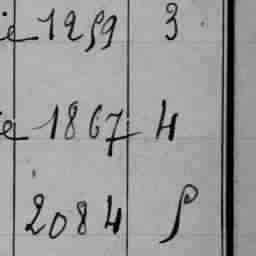 ie 1259 3
e 1867 4
2084 5